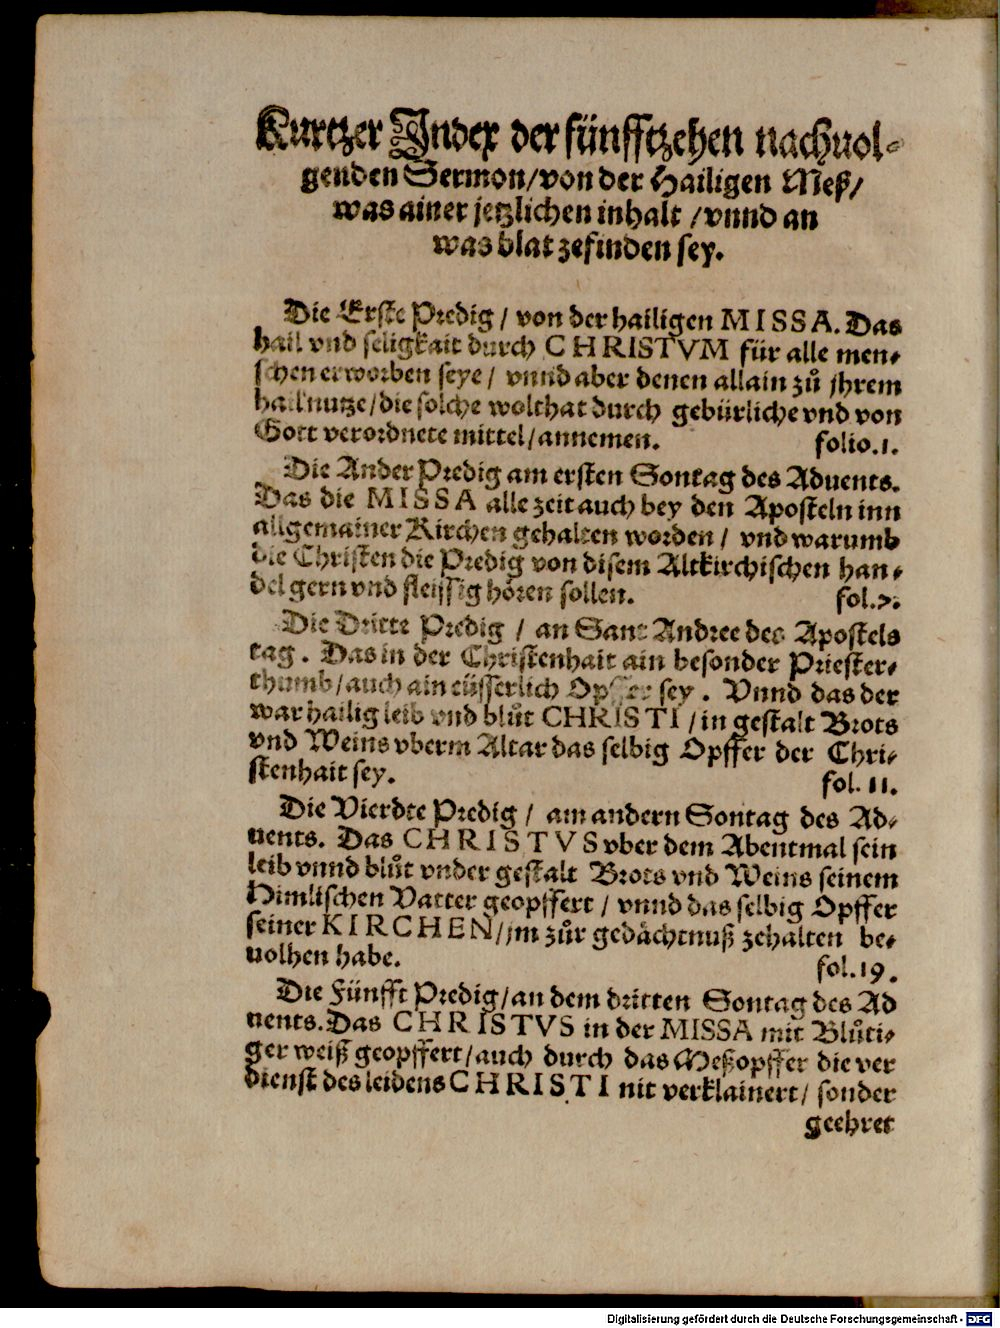 Kurtzer Index der fünfftzehen nachuol-
genden Sermon/von der Hailigen Meß/
was ainer jetzlichen inhalt /vnnd an
was blat zefinden sey.
Die Erste Predig / von der hailigen MISSA. Das
hail vnd seligkait durch CHRISTVM für alle men-
schen erworben seye / vnnd aber denen allain zů jhrem
hail nutze/die solche wolthat durch gebürliche vnd von
Gott verordnete mittel/annemen. folio.1.
Die Ander Predig am ersten Sontag des Aduents.
Das die MISSA alle zeit auch bey den Aposteln inn
allgemainer Kirchen gehalten worden / vnd warumb
die Christen die Predig von disem Altkirchischen han-
del gern vnd fleissig hören sollen. fol.7.
Die Dritte Predig / an Sant Andree des Apostels
tag. Das in der Christenhait ain besonder Priester-
thumb/auch ain eüsserlich Opffer sey. Vnnd das der
war hailig leib vnd blůt CHRISTI/in gestalt Brots
vnd Weins vberm Altar das selbig Opffer der Chri-
stenhait sey. fol. 11.
Die Vierdte Predig / am andern Sontag des Ad-
uents. Das CHRISTVS vber dem Abentmal sein
leib vnnd blůt vnder gestalt Brots vnd Weins seinem
Himlischen Vatter geopffert / vnnd das selbig Opffer
seiner KIRCHEN/jm zůr gedächtnuß zehalten be-
uolhen habe. fol.19.
Die Fünfft Predig/an dem dritten Sontag des Ad
uents. Das CHRISTVS in der MISSA mit Blůti-
ger weiß geopffert/auch durch das Meßopffer die ver
dienst des leidens CHRISTI nit verklainert/ sonder
geehret
Digitalisierung gefördert durch die Deutsche Forschungsgemeinschaft - DFG